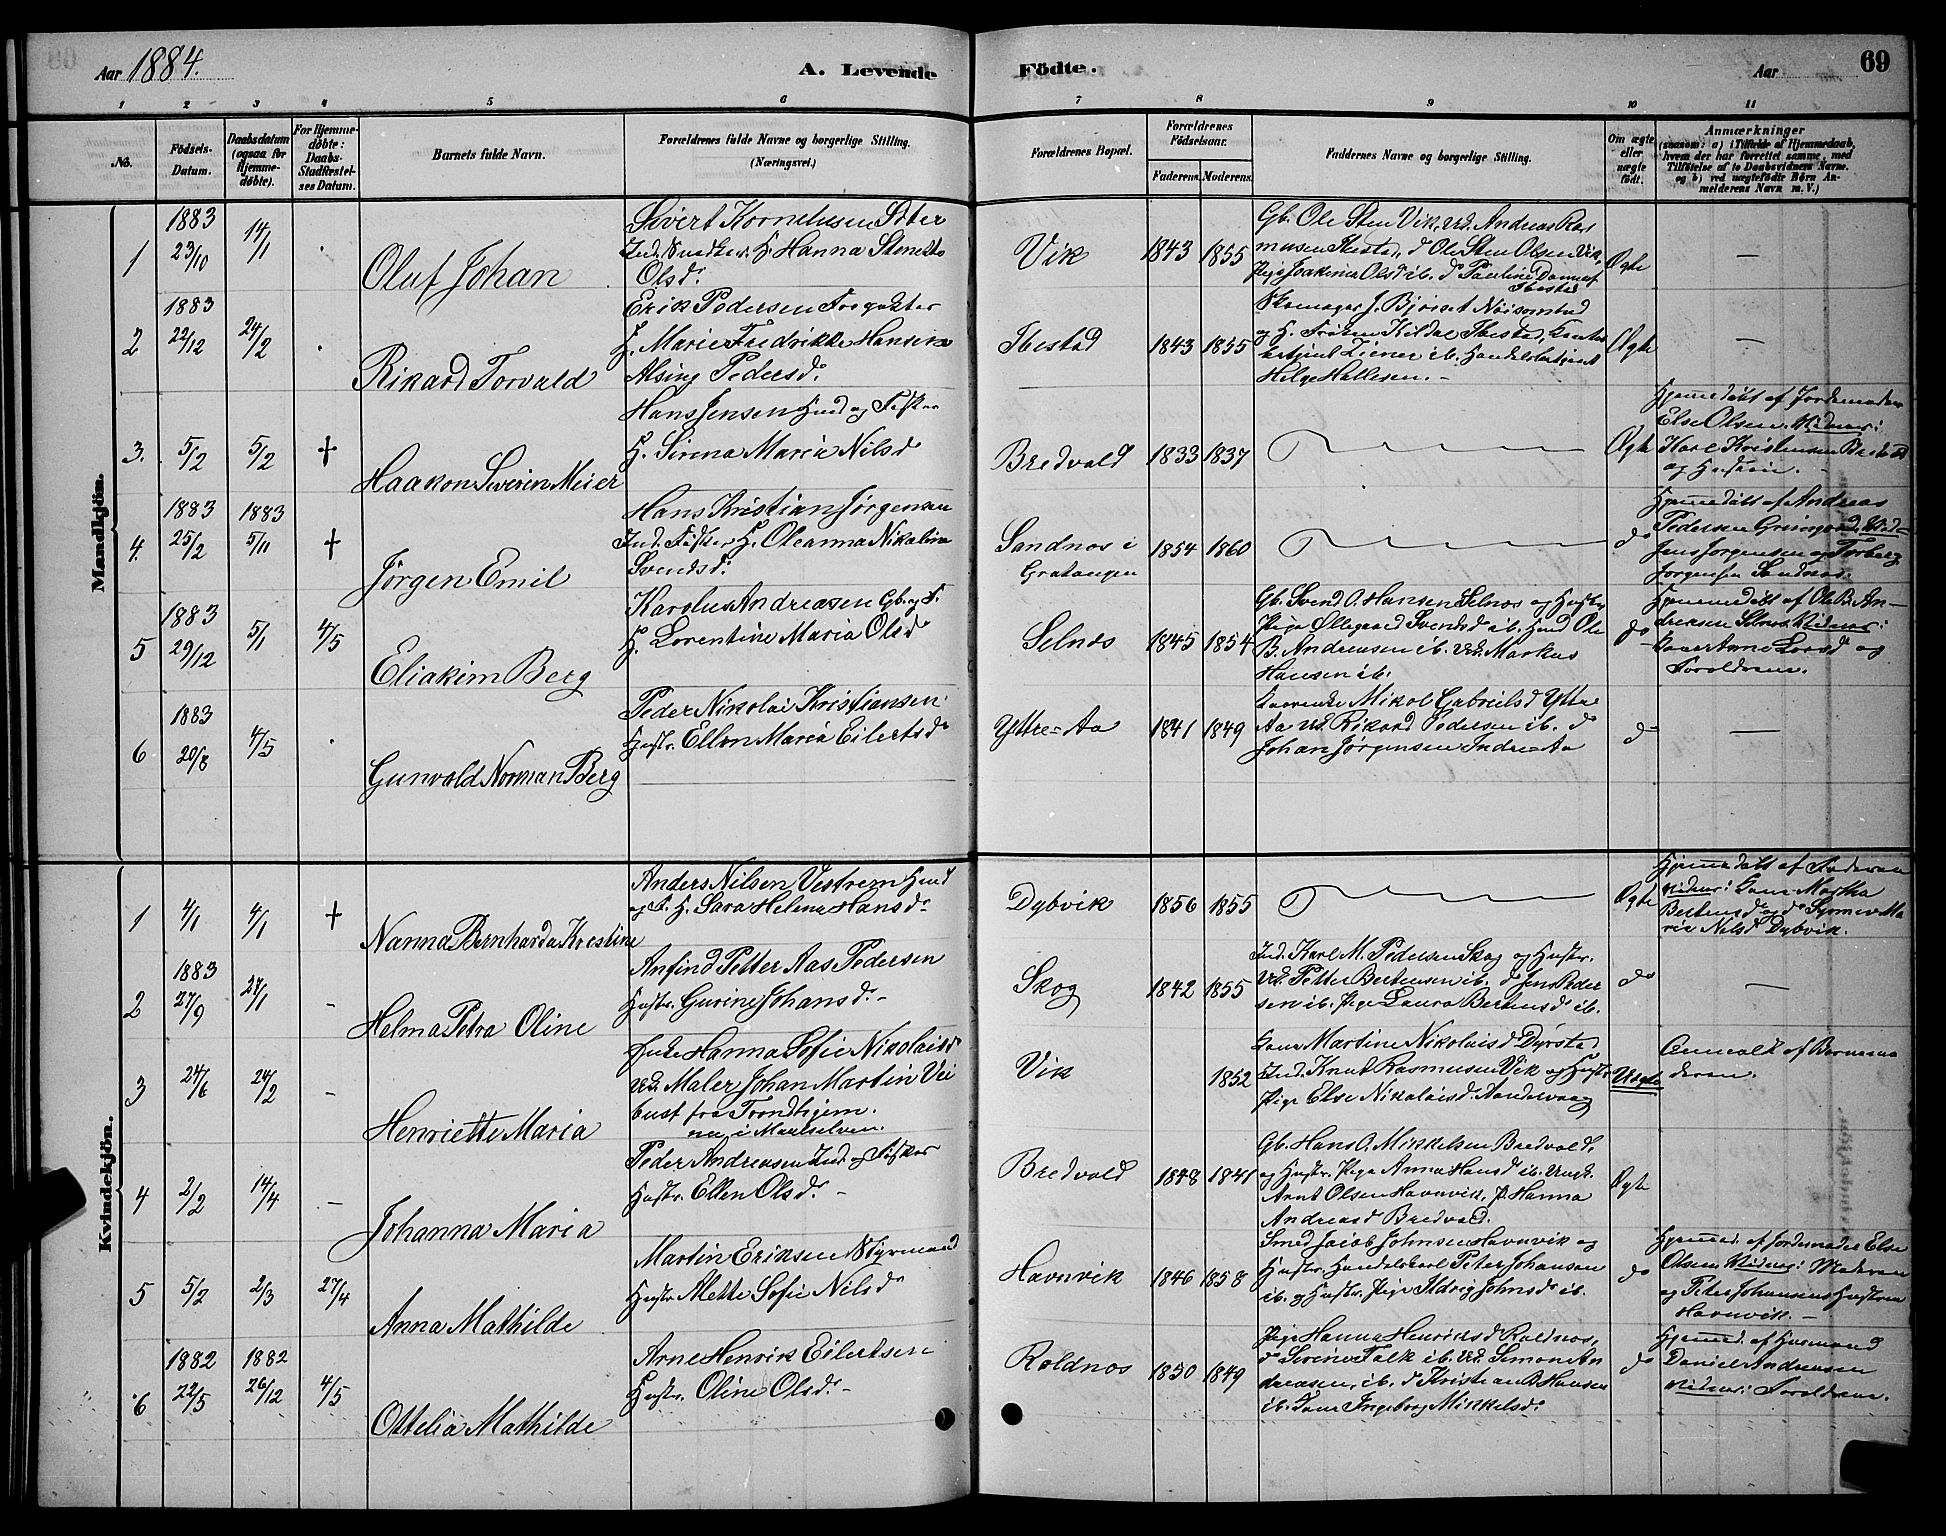 69
Aar 1884.
A. Levende Födte.
Aar
1 2 3 4 5 6 7 8 9 10 11
No.
Födsels-Datum.
Daabsdatum (ogsaa for Hjemme-döbte).
For Hjemme-döbte: Daabs-Stadfæstel-ses Datum.
Barnets fulde Navn.
Forældrenes fulde Navne og borgerlige Stilling.
(Næringsvei.)
Forældrenes Bopæl.
Forældrenes Födselsaar.
Faderens. Moderens.
Faddernes Navne og borgerlige Stilling.
Om ægte eller uægte födt.
Anmærkninger
(saasom: a) i Tilfælde af Hjemmedaab, hvem der har forrettet samme, med Tilföielse af to Daabsvidners Navne. og b) ved uægtefödte Börn An-melderens Navn m. V.)
Mandkjön.
1
1883
23/10
14/1
Oluf Johan
Sivert Kornelius
Ind. H. Hanna
Olsd.
Vik
1843 1855
Gb. Ole Sten Vik, Andreas Ras
musen Ibestad, d Ole Sten Olsen Vik,
Pige Joakima Olsd ib. d Pauline
Ibestad
Ægte
—
2
1883
22/12
24/2
Rikard Torvald
Erik Pedersen Forpakter
H. Marie Fredrikke Hansine
Alsing Pedersd.
Ibestad
1843 1855
Skomager J.
og H. Frøken Kildal Ibestad,
ib. Handelsbetjent
Helge Hallesen. —
Ægte
—
3.
5/2
5/2
†
Haakon Severin Meier
Hans Jensen Husd og Fisker
H. Sirena Maria Nilsd
Bredvald
1833 1837
Ægte
Hjemmedøbt af Jordemoder
Else Olsen. Vidner:
Karl Kristensen
og Hustru. —
4.
1883
25/2
1883
5/11
†
Jörgen Emil
Hans Kristian Jörgensen
Ind. Fisker H. Oleanna Nikoline
Svendsd.
Sandnes i
Gratangen
1854 1860
do
Hjemmedøbt af Andreas
Pedersen
Jens Jörgensen og Torberg
Jörgensen Sandnes.
5
1883
29/12
5/1
4/5
Eliakim Berg
Karolus Andreasen Gb. og F.
H. Lorentine Maria Olsd
Selnes
1845 1854
Gb. Svend O. Hansen Selnes og Hustru
Pige Øllegaard Svendsd ib. Ole
B. Andreasen ib. Markus
Hansen ib.
do
Hjemmedøbt af Ole B. An-
dreasen Selnes Vidner:
Anne Larsd og
Forældrene.
6
1883
20/8
4/5
Gunvald Norman Berg
Peder Nikolai Kristiansen
Hustr. Ellen Maria Eilertsd
Yttre-Aa
1841 1849
Mikol Gabrielsd Yttre
Aa Rikard Pedersen ib. d
Johan Jörgensen Indre Aa
do
—
Kvindekjön.
1
4/1
4/1
†
Nanna Bernharda Kristine
Anders Nilsen
og F. H. Sara Helena Hansd.
Dybvik
1856 1855
Ægte
Hjemmedøbt af Faderen
Vidner: Martha
Bertensd og
rie Nilsd Dybvik.
2
1883
27/9
27/1
-
Helma Petra Oline
Anfind Petter Aas Pedersen
Hustr. Gurine Johansd. -
Skog
1842 1855
Ind. Karl M. Pedersen Skog og Hustr.
Petter Bertensen ib. d Jens Peder
sen ib. Pige Laura Bertensd ib.
do
—
3
27/6
24/2
-
Henriette Maria
Hanna Sofie Nikolaisd
Maler Johan Martin
fra Trondhjem.
nu i Maalselven.
Vik
1852
Martine Nikolaisd
Ind. Knut Rasmussen Vik og Hustr
Pige Else Nikolaisd
Uægte
Anmeldt af Barnemo
deren.
4
2/2
14/4
-
Johanna Maria
Peder Andreasen Ind. og Fisker
Hustr. Ellen Olsd. -
Bredvald
1848 1841
Gb. Hans O. Mikkelsen Bredvold,
og Hustr. Pige Anna Hansd ib. Ungk.
Arnt Olsen Havnvik, P. Hanna
Andreasd Bredvold.
Ægte
5
5/2
2/3
27/4
Anna Mathilde
Martin Eriksen Styrmand
Hustr. Alette Sofie Nilsd
Havnvik
1846 1858
Smed Jacob Johnsen Havnvik og
Hustr. Handelskarl Peter Johansen
ib. og Hustr. Pige Johnsd ib.
do
Hjemmed. af Jordemoder Else
Olsen Vidner: Moderen
og Peter Johansens Hustru
Havnvik. —
6
1882
22/5
1882
26/12
4/5
Ottelia Mathilde
Arne Henrik Eilertsen
Hustr. Oline Olsd. -
Roldnes
1850 1849
Pige Hanna Henriksd Roldnes,
d Serine Falk ib. Simon An
dreasen, ib. d Kristian B. Hansen
ib. Ingeborg Mikkelsd.
do
Hjemmed. af Husmand
Daniel Andreassen
Vidner: Forældrene.